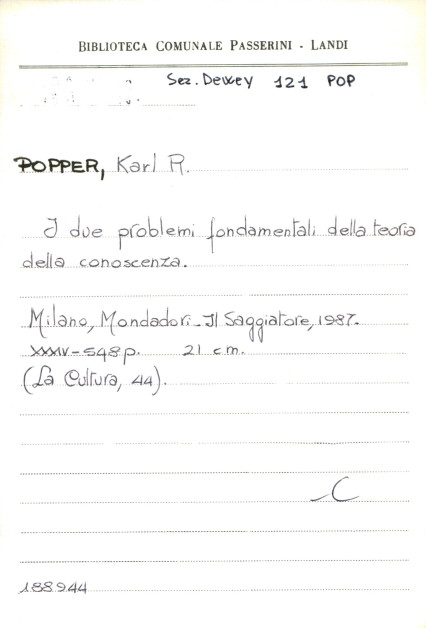 BIBLIOTECA COMUNALE PASSERINI - LANDI
Sez. Dewey 121 POP
POPPER, Karl R.
I due problemi fondamentali della teoria
della conoscenza.
Milano, Mondadori - Il Saggiatore, 1987.
XXXIV-548 p. 21 cm.
(La Cultura, 44).
C
188944